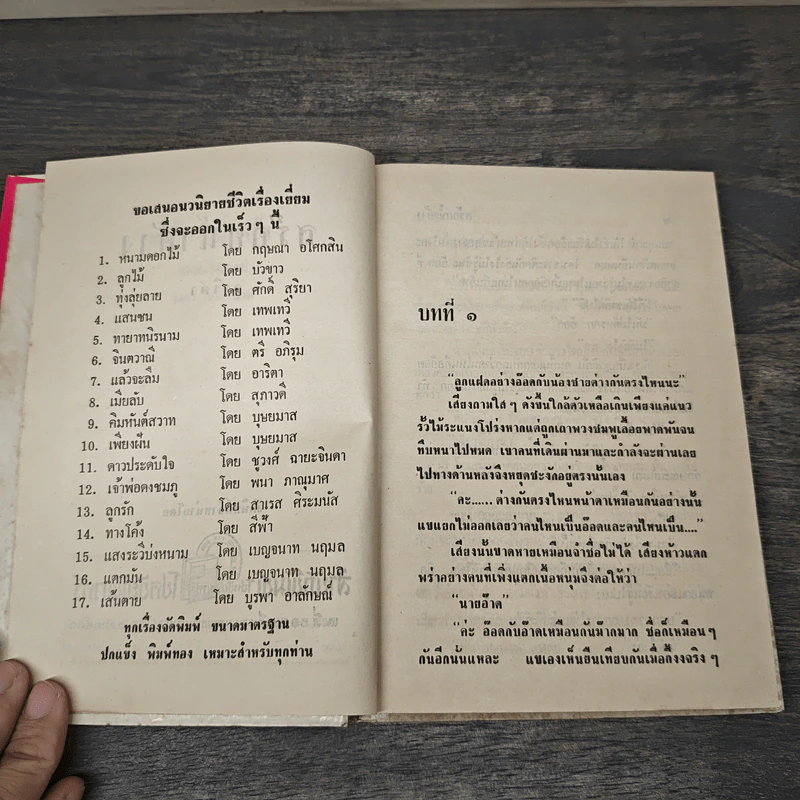 ขอเสนอนวนิยายชีวิตเรื่องเยี่ยม
ซึ่งจะออกในเร็วๆ นี้
1. หนามดอกไม้ โดย กฤษณา อโศกสิน
2. ลูกไม้ โดย บัวขาว
3. ทุ่งลุ่ยลาย โดย ศักดิ์ สุริยา
4. แสนซน โดย เทพเทวี
5. ทายาทนิรนาม โดย เทพเทวี
6. จินตวาณี โดย ตรี อภิรุม
7. แล้วจะลืม โดย อาริตา
8. เมียลับ โดย สุภาวดี
9. คิมหันต์สวาท โดย บุษยมาส
10. เพียงฝัน โดย บุษยมาส
11. ดาวประดับใจ โดย ชูวงศ์ ฉายะจินดา
12. เจ้าพ่อดงชมภู โดย พนา ภาณุมาศ
13. ลูกรัก โดย สาเรส ศิระมนัส
14. ทางโค้ง โดย สีฟ้า
15. แสงระวีบ่งหนาม โดย เบญจนาท นฤมล
16. แตกมัน โดย เบญจนาท นฤมล
17. เส้นตาย โดย บูรพา อาลักษณ์
ทุกเรื่องจัดพิมพ์ ขนาดมาตรฐาน
ปกแข็ง พิมพ์ทอง เหมาะสำหรับทุกท่าน
บทที่ ๑
“ลูกแฝดอย่างอ๊อดกับน้องชายต่างกันตรงไหนนะ”
เสียงถามใสๆ ดังขึ้นใกล้ตัวเหลือเกินเพียงแค่แนว
รั้วไม้ระแนงโปร่งหากแต่ถูกเถาพวงชมพูเลื้อยพาดพันจน
ทึบหนาไปหมด เขาคนที่เดินผ่านมาและกำลังจะผ่านเลย
ไปทางด้านหลังจึงหยุดชะงักอยู่ตรงนั้นเอง
“คะ......ต่างกันตรงไหนหน้าตาเหมือนกันอย่างนั้น
แขแยกไม่ออกเลยว่าคนไหนเป็นอ๊อดและคนไหนเป็น....”
เสียงนั้นขาดหายเหมือนจำชื่อไม่ได้ เสียงห้าวแตก
พร่าอย่างคนที่เพิ่งแตกเนื้อหนุ่มจึงต่อให้ว่า
“นายอ๊าด”
“ค่ะ อ๊อดกับอ๊าดเหมือนกันม๊ากมาก ชื่อก็เหมือนๆ
กันอีกนั่นแหละ แขเองเห็นยืนเทียบกันเมื่อกี้งงจริงๆ